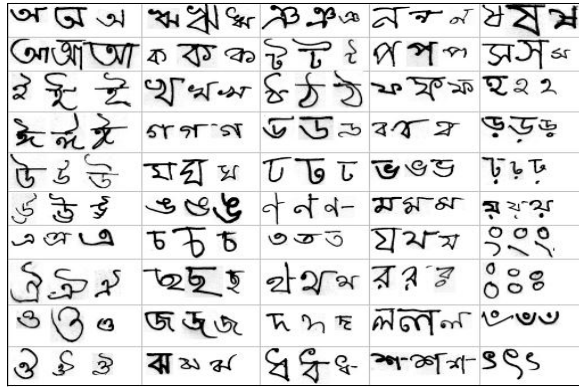 অ অ অ ঋ ঋ ঋ ঞ ঞ ঞ ন ন ন ষ ষ ষ
আ আ আ ক ক ক ট ট ট প প প স স স
ই ই ই খ খ খ ঠ ঠ ঠ ফ ফ ফ হ হ হ
ঈ ঈ ঈ গ গ গ ড ড ড ব ব ব ড় ড় ড়
উ উ উ ঘ ঘ ঘ ঢ ঢ ঢ ভ ভ ভ ঢ় ঢ় ঢ়
ঊ ঊ ঊ ঙ ঙ ঙ ণ ণ ণ ম ম ম য় য় য়
এ এ এ চ চ চ ত ত ত য য য ং ং ং
ঐ ঐ ঐ ছ ছ ছ থ থ থ র র র ঃ ঃ ঃ
ও ও ও জ জ জ দ দ দ ল ল ল ঁ ঁ ঁ
ঔ ঔ ঔ ঝ ঝ ঝ ধ ধ ধ শ শ শ ৎ ৎ ৎ